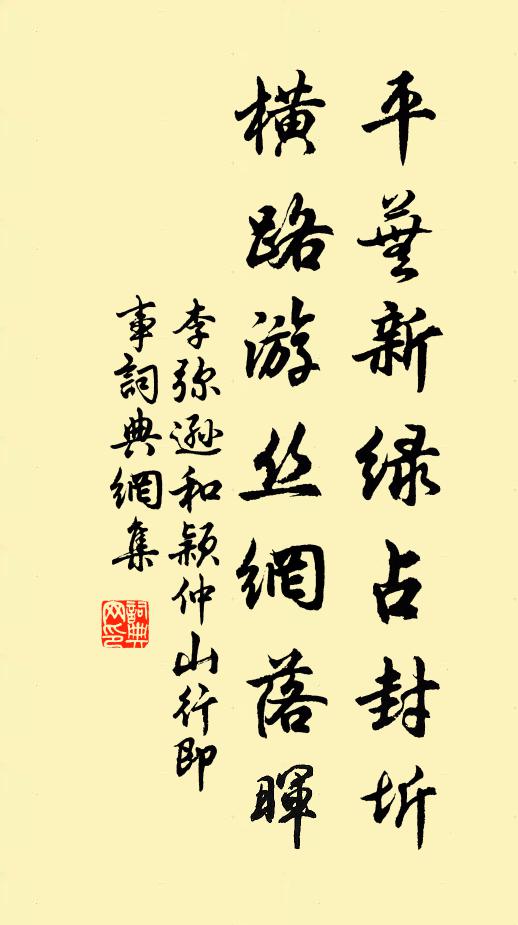 平蕪新绿占封圻
橫路游丝網落暉
李弥遜和颖仲山行即
事詞典網集
詞典网印